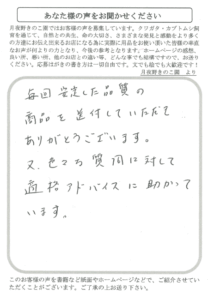 あなたの声をお聞かせください
月夜野きのこ園ではお客様の声を募集しています。クワガタ・カブトムシ飼
育を通じて、自然との共生、命の大切さ、さまざまな発見と感動をより多く
の方達にお伝え出来るお店になる為に実際に用品をお使い頂いた皆様の率直
なお声が何よりの力となり、今後の参考となります。ホームページの感想、
良い所、悪い所、他のお店との違い等、どんな事でも結構ですので、お送り
ください。応募はがきの書き方は一切自由です。文でも絵でも大歓迎です!
月夜野きのこ園 より
毎回安定した品質の
商品を送付していただき
ありがとうございます。
又、色々な質問に対して
適格アドバイスに助かって
います。
このお客様の声を書籍など紙面やホームページなどで、ご紹介させてい
ただくことがございます。ご了承の上お送り下さい。